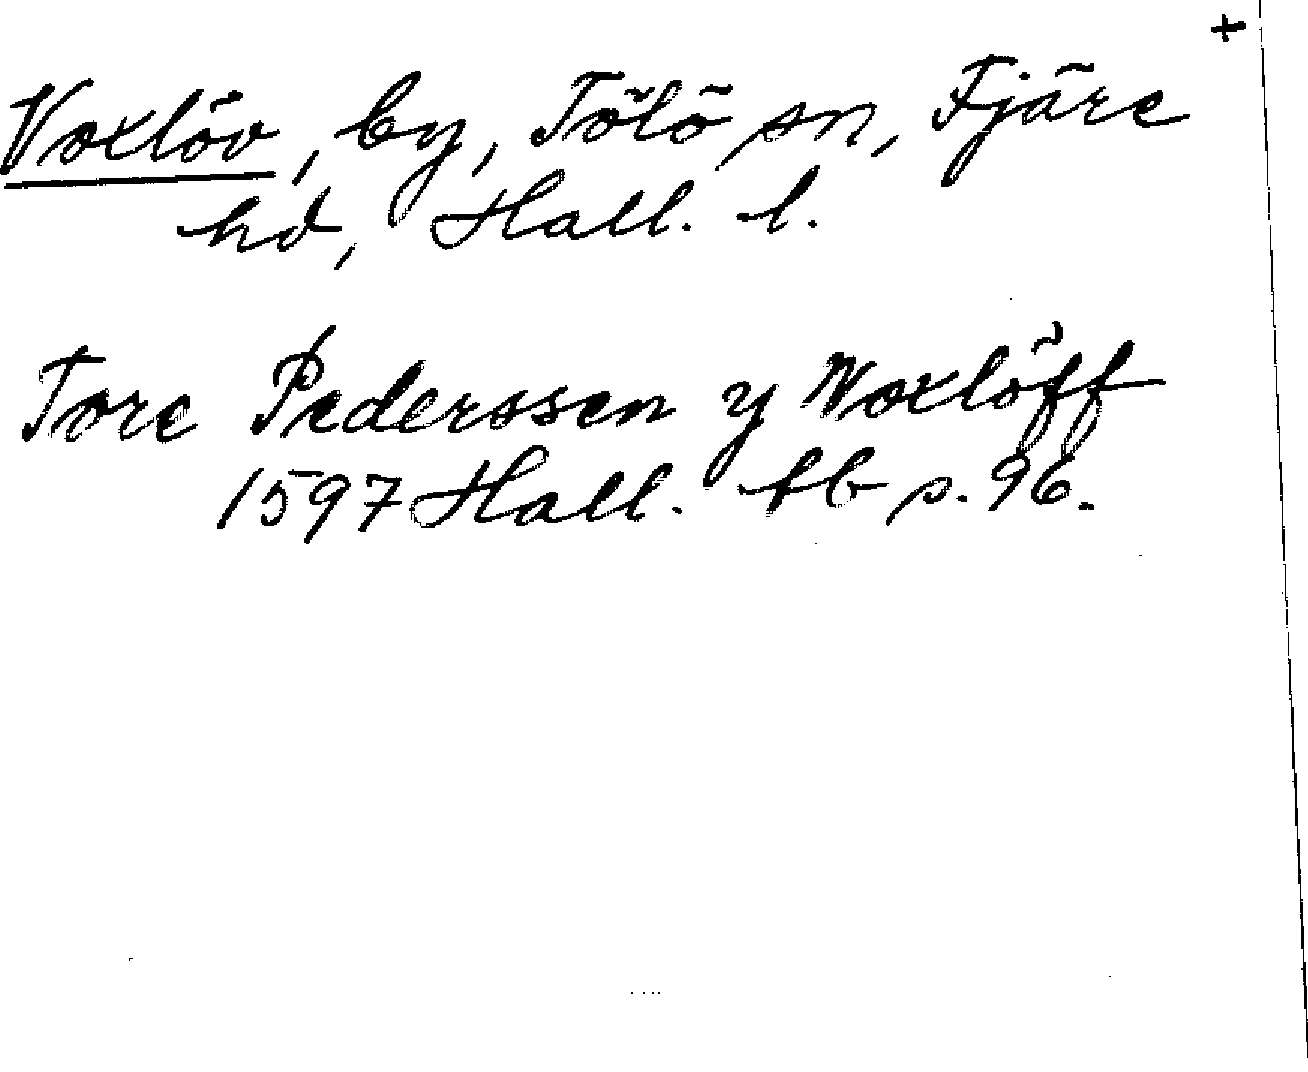 +
Voxlöv, by, Tölö sn, Fjäre
hd, Hall. l.
Tore Pederssen y Woxlöff
1597 Hall. tb p. 96.